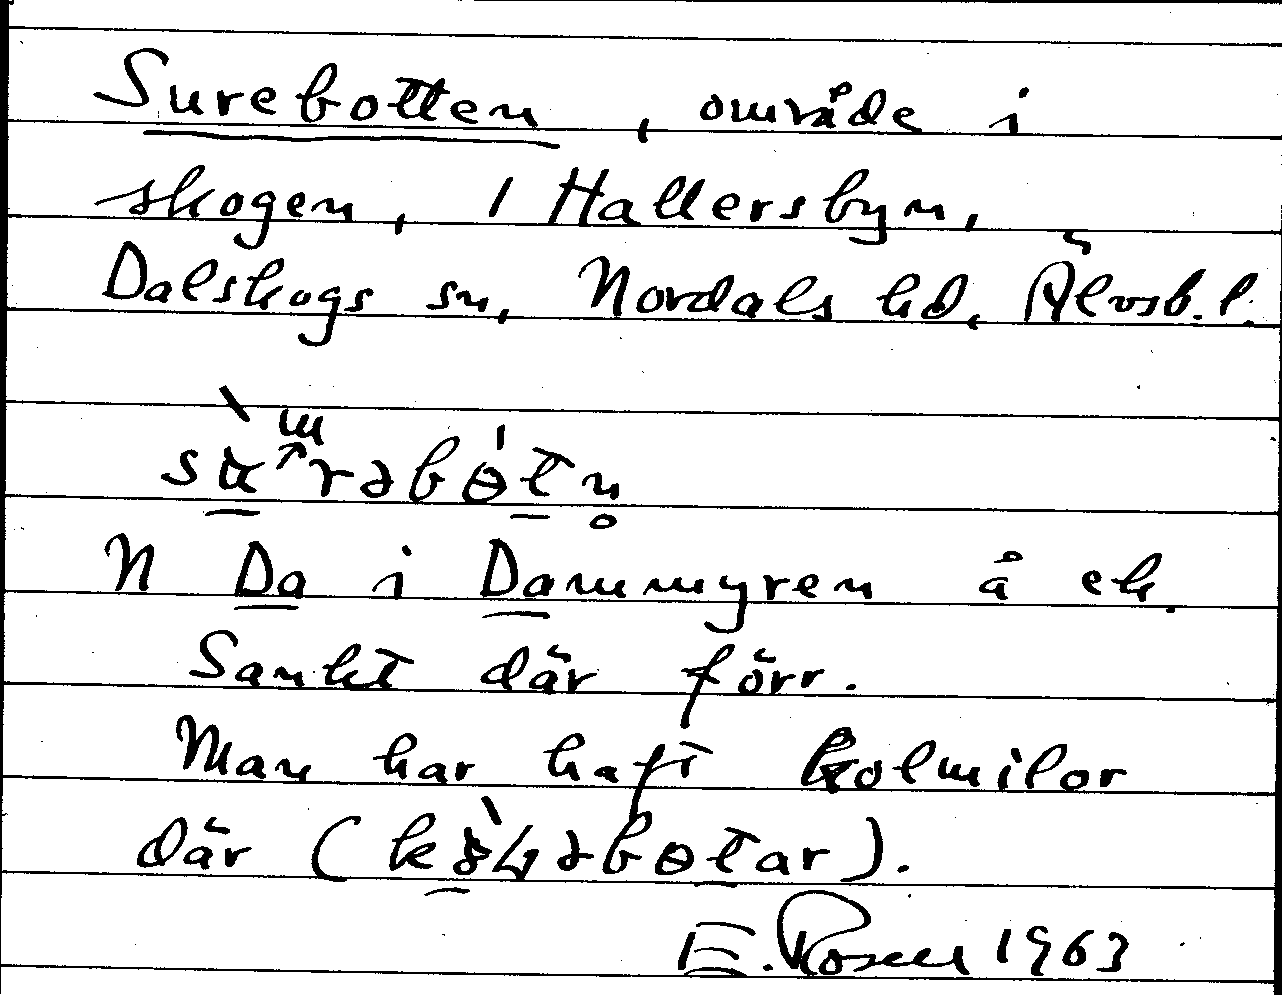 Surebotten, område i
skogen, i Hallersbyn,
Dalskogs sn, Nordals hd, Älvsb. l.
N Da i Dammyren å ek.
Sankt där förr.
Man har haft kolmilor
där
E. Rosell 1963